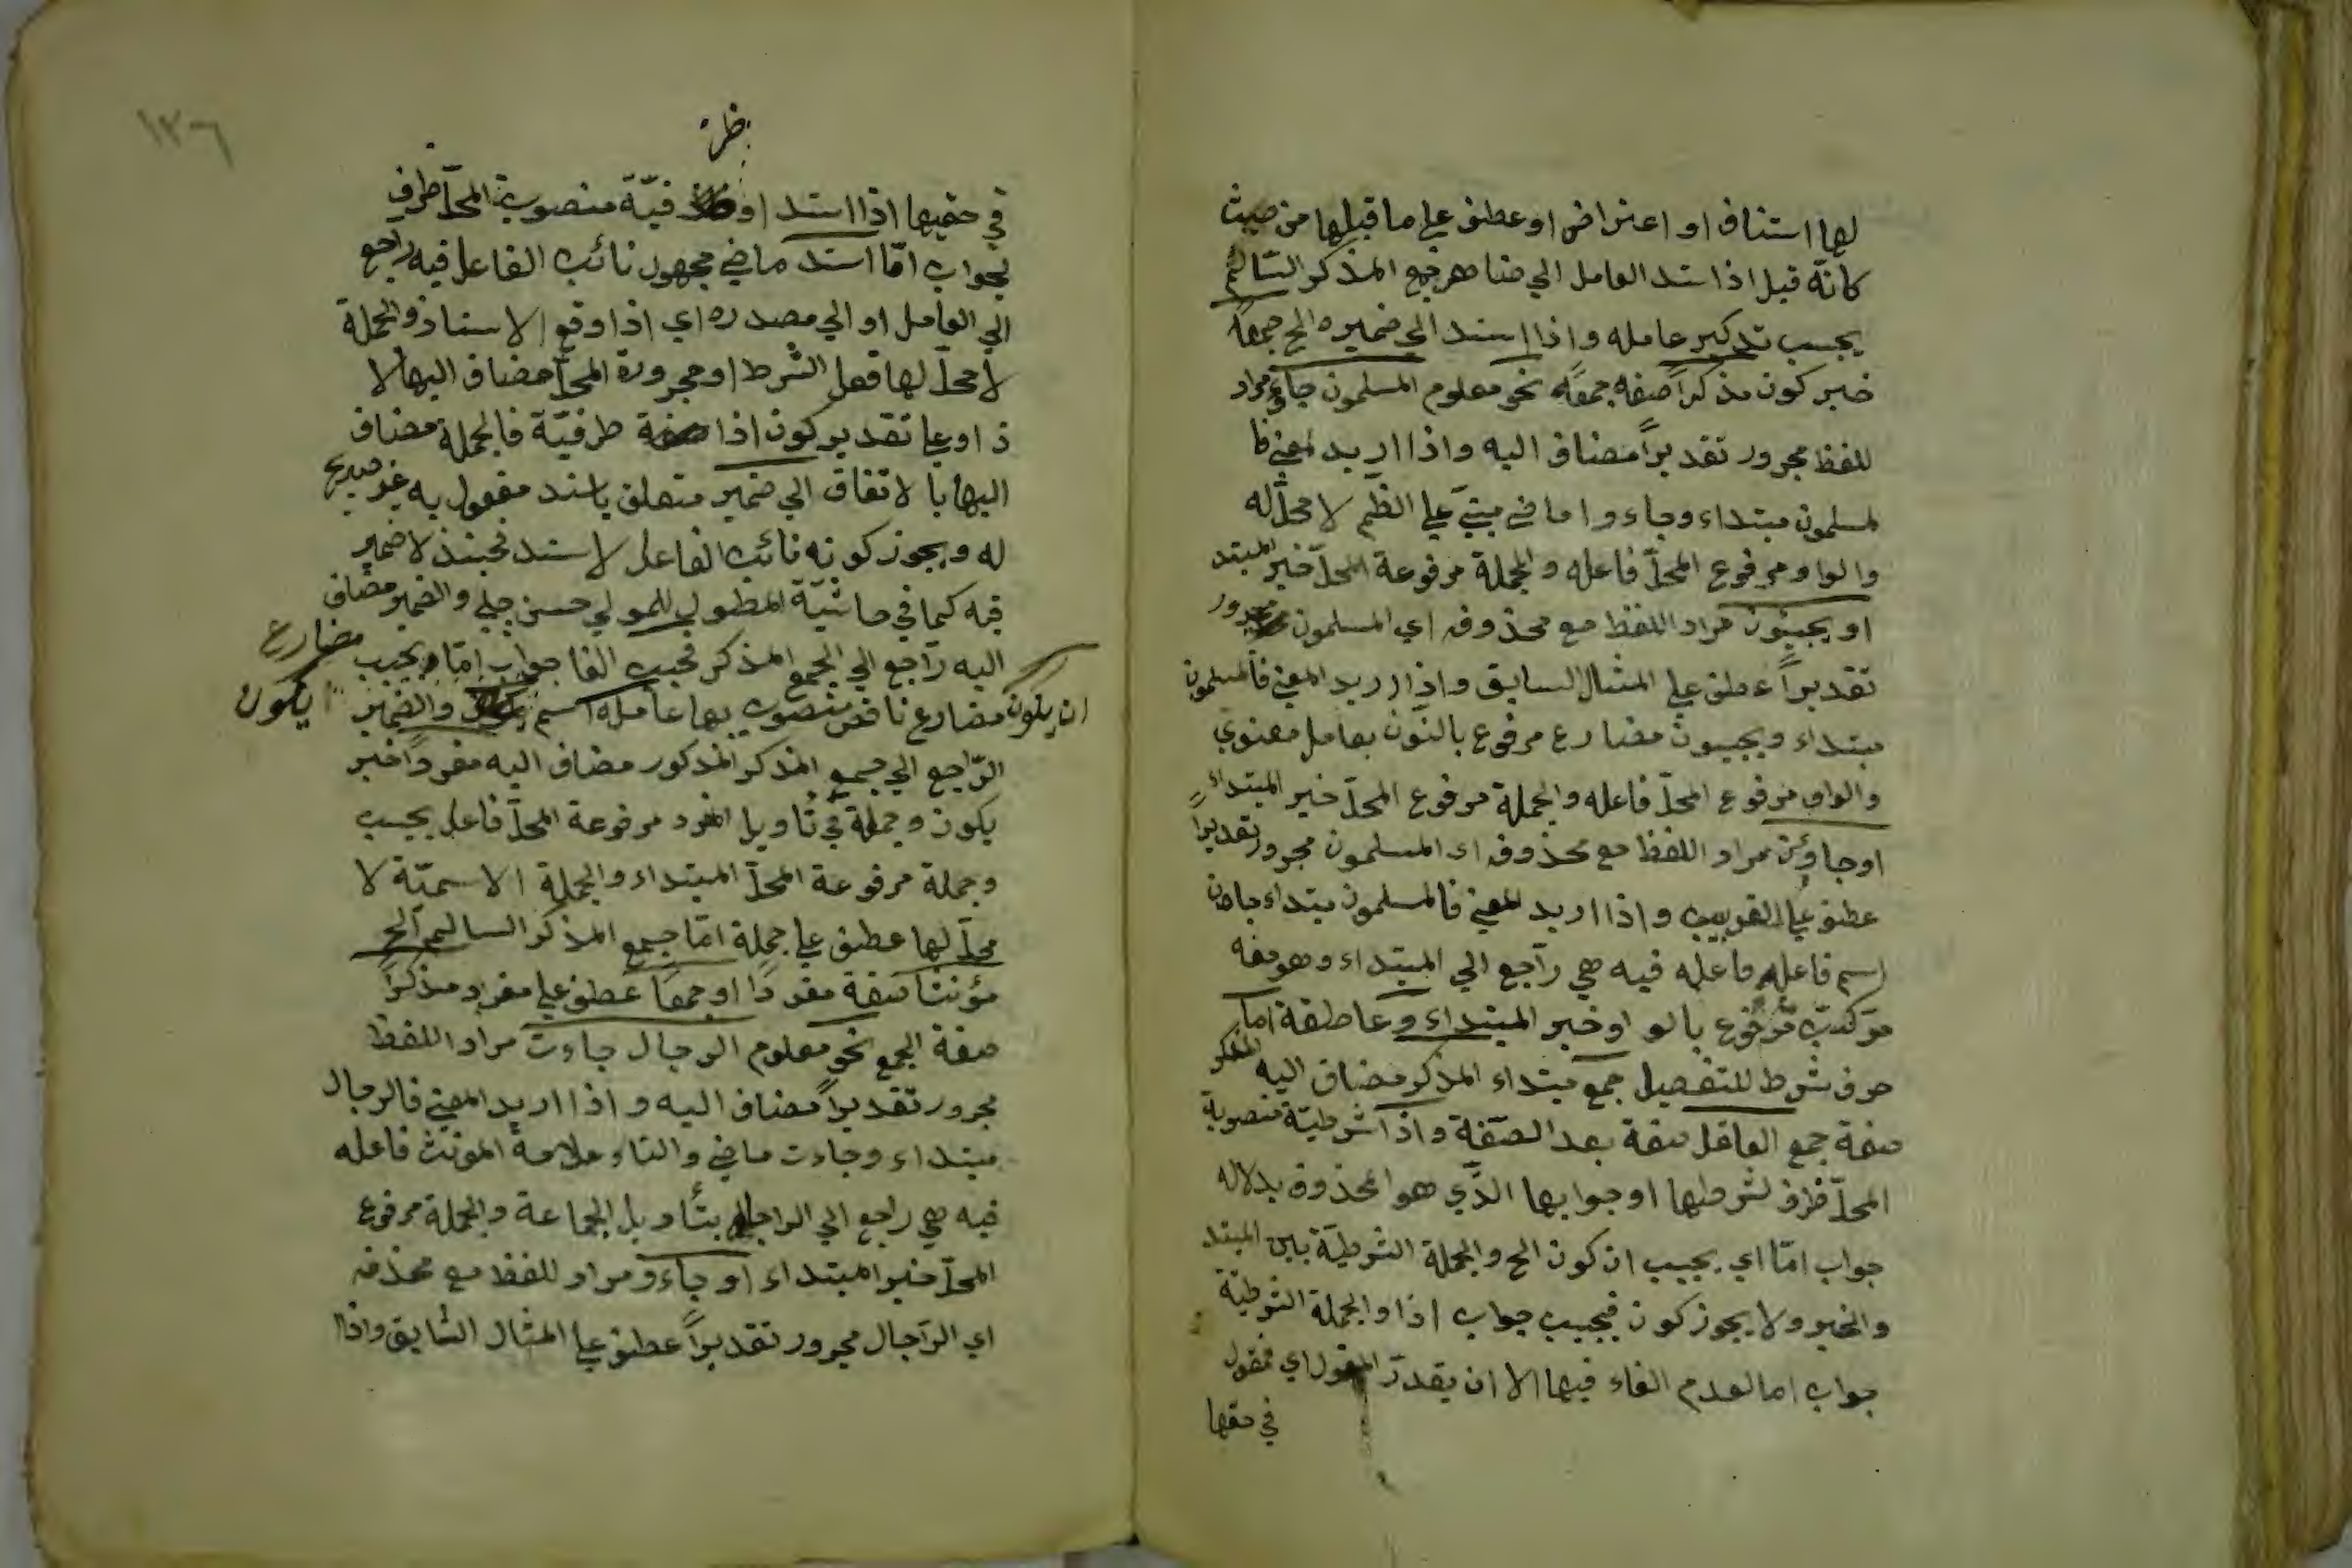 لها استناف او اعتراض او عطف علي ما قبلها من حيث
كانّه قيل اذا سند العامل الي ضا هر جمع المذكر السّالم
يجب تدكير عامله واذا اسند الي ضميره الخ جمعًا
خبر كون مذكرًا صفه جمعًا نحو معلوم المسلمون جاؤ مراد
للفظ مجرور تقديرًا مضاف اليه واذا اريد لمعني فا
لمسلمون مبتداء وجاء وا ماضي مبنيّ علي الظّم لا محلّ له
والواو مرفوع المحلّ فاعله والجملة مرفوعة المحلّ خبر المبتد
او يجيئون مراد اللفظ مع محذوفه اي المسلمون مجرور
تقديرًا عطف علي المثال السابق واذا اريد المعني فالمسلمون
مبتداء ويجيون مضارع مرفوع بالنّون بعامل معنوي
والواو مرفوع المحلّ فاعله والجملة مرفوع المحلّ خبر المبتداء
او جاؤن مراد اللفظ مع محذوفه اي المسلمون مجرور تقديرًا
عطف علي القريب واذا اريد المعني فالمسلمون مبتداء جاون
اسم فاعله فاعله فيه هي رآجع الي المبتداء وهو معه
مركّب مرفوع بالو او خبر المبتداء وعاطفة اما
حرف شرط للتفصيل جمع مبتداء المذكر مضاف اليه المذكر
صفة جمع العاقل صفة بعد الصّفة واذا شرطيّة منصوبة
المحلّ ظرف لشرطها او جوابها الّذي هو المحذوف بدلاله
جواب امّا اي يجب ان كون الخ والجملة الشرطيّة بين المبتد
والخبر ولا يجوز كون فيجب جواب اذا والجملة الشرطيّة
جواب اما لعدم الفاء فيها الا ان يقدّر القول اي فمقول
في حقها
١٣٦
ظر
في حقيها اذا اسند او فيّة منصوبة المحلّ ظرف
لجواب امّا اسند ماضي مجهول نائب الفاعل فيه راجع
الي العامل او الي مصدره اي اذا وقع الاسناد والجملة
لا محلّ لها فعل الشرط او مجرورة المحلّ مضاف اليها لا
ذا وعلي تقدير كون اذا ظرفيّة فالجملة مضاف
اليها بالاتفاق الي ضمير متعلق باسند مفعول به غير صريح
له ويجوز كونه نائب الفاعل لاسند فحينئذ لا ضمير
فيه كما في حاشيّة المطول للمولي حسن چلبي والضمير مضاف
اليه رآجع الي الجمع المذكر فيجب الفا جواب امّا ويجب مضارع
ان يكون مضارع ناقص منصوب بها عامله اسم يكون والضمير
يكون
الرّاجع الي جمع المذكر المذكور مضاف اليه مفردًا خبر
يكون وجملة في تأويل المفرد مرفوعة المحلّ فاعل يجب
وجملة مرفوعة المحلّ المبتداء والجملة الاسميّة لا
محلّ لها عطف علي جملة امّا جمع المذكر السالم الخ
مؤنثا صفة مفردًا او جمعًا عطف علي مفرد مذكرًا
صفة الجمع نحو معلوم الرجال جاءت مراد اللفظ
مجرور تقديرًا مضاف اليه واذا اريد المعني فالرجال
مبتداء وجاءت ماضي والتاء علامة المؤنث فاعله
فيه هي راجع الي الراجال بتأويل الجماعة والجملة مرفوع
المحلّ خبر المبتداء او جاءو مراد للفظ مع محذفه
اي الرّاجال مجرور تقديرًا عطف علي المثال السّابق واذا